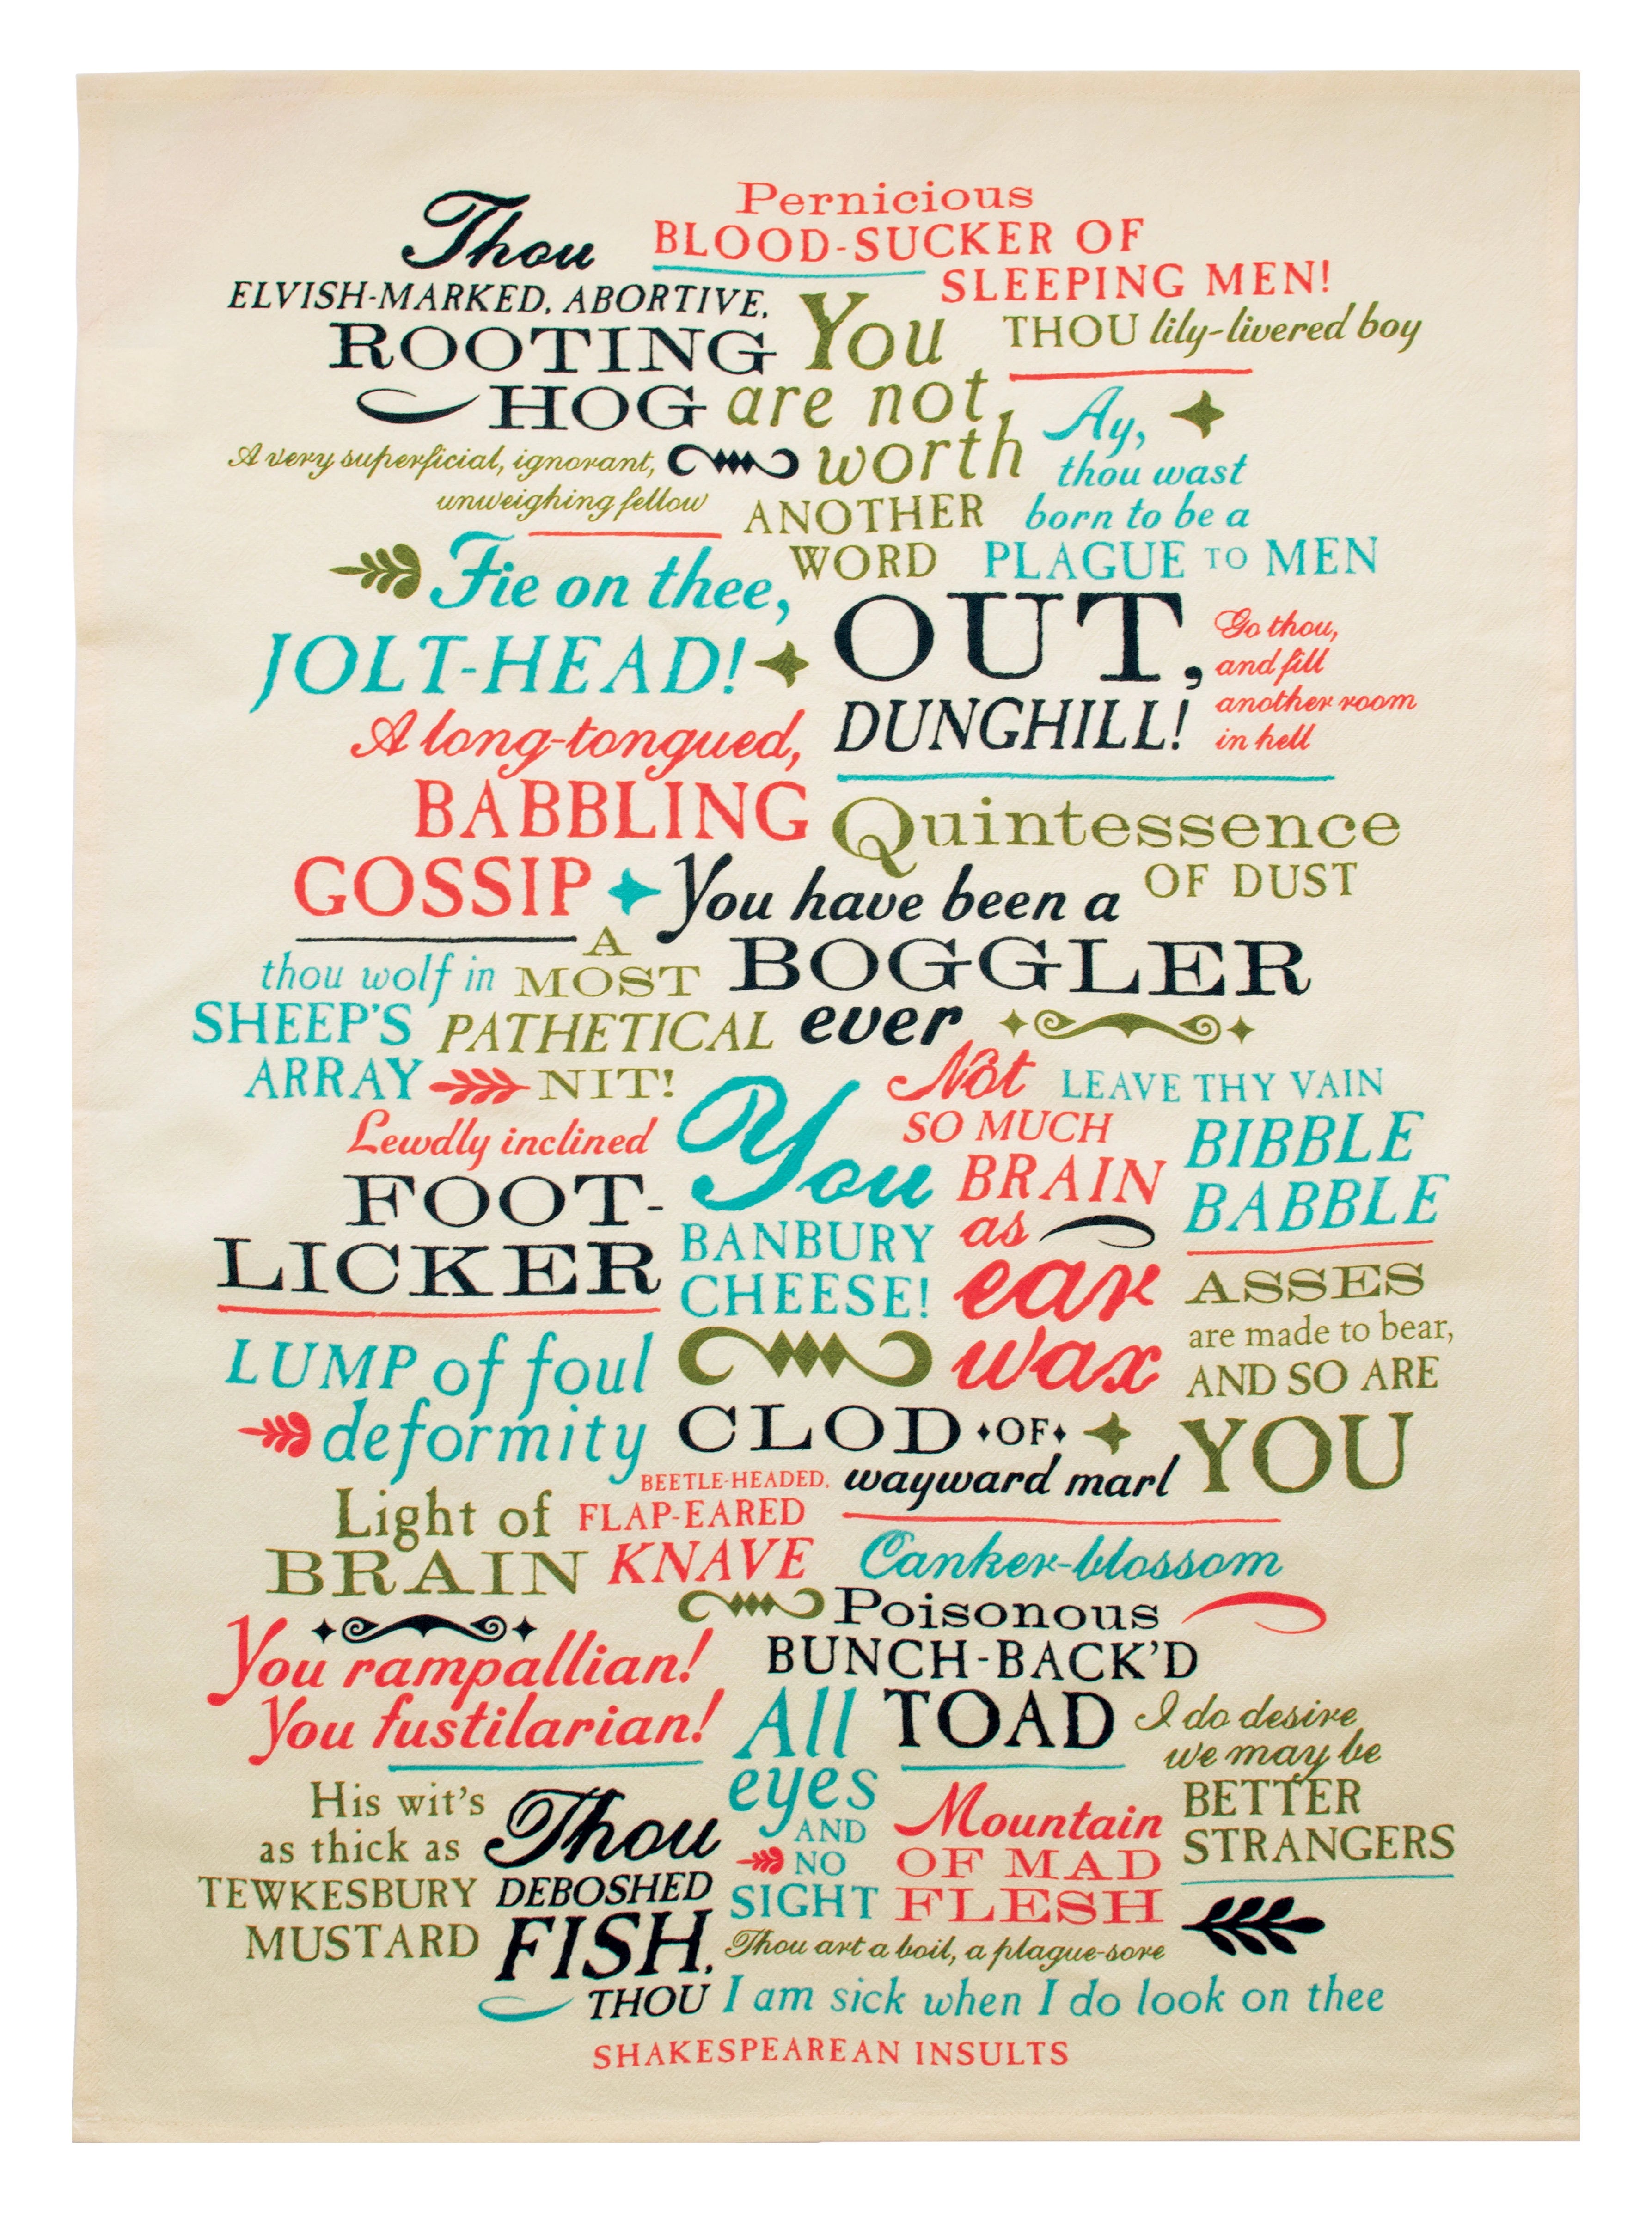 Thou
ELVISH-MARKED, ABORTIVE,
ROOTING
HOG
Pernicious
BLOOD-SUCKER OF
SLEEPING MEN!
You
are not
worth
ANOTHER
WORD
THOU lily-livered boy
A very superficial, ignorant,
unweighing fellow
Ay,
thou wast
born to be a
PLAGUE TO MEN
Fie on thee,
JOLT-HEAD!
OUT,
DUNGHILL!
Go thou,
and fill
another room
in hell
A long-tongued,
BABBLING
GOSSIP
Quintessence
OF DUST
You have been a
BOGGLER
ever
thou wolf in
SHEEP'S
ARRAY
A
MOST
PATHETICAL
NIT!
Lewdly inclined
FOOT-
LICKER
You
BANBURY
CHEESE!
Not
SO MUCH
BRAIN
as
ear
wax
LEAVE THY VAIN
BIBBLE
BABBLE
ASSES
are made to bear,
AND SO ARE
YOU
LUMP of foul
deformity
CLOD OF
wayward marl
Light of
BRAIN
BEETLE-HEADED,
FLAP-EARED
KNAVE
Canker-blossom
Poisonous
BUNCH-BACK'D
TOAD
You rampallian!
You fustilarian!
All
eyes
AND
NO
SIGHT
I do desire
we may be
BETTER
STRANGERS
His wit's
as thick as
TEWKESBURY
MUSTARD
Thou
DEBOSHED
FISH,
THOU
Mountain
OF MAD
FLESH
Thou art a boil, a plague-sore
I am sick when I do look on thee
SHAKESPEAREAN INSULTS